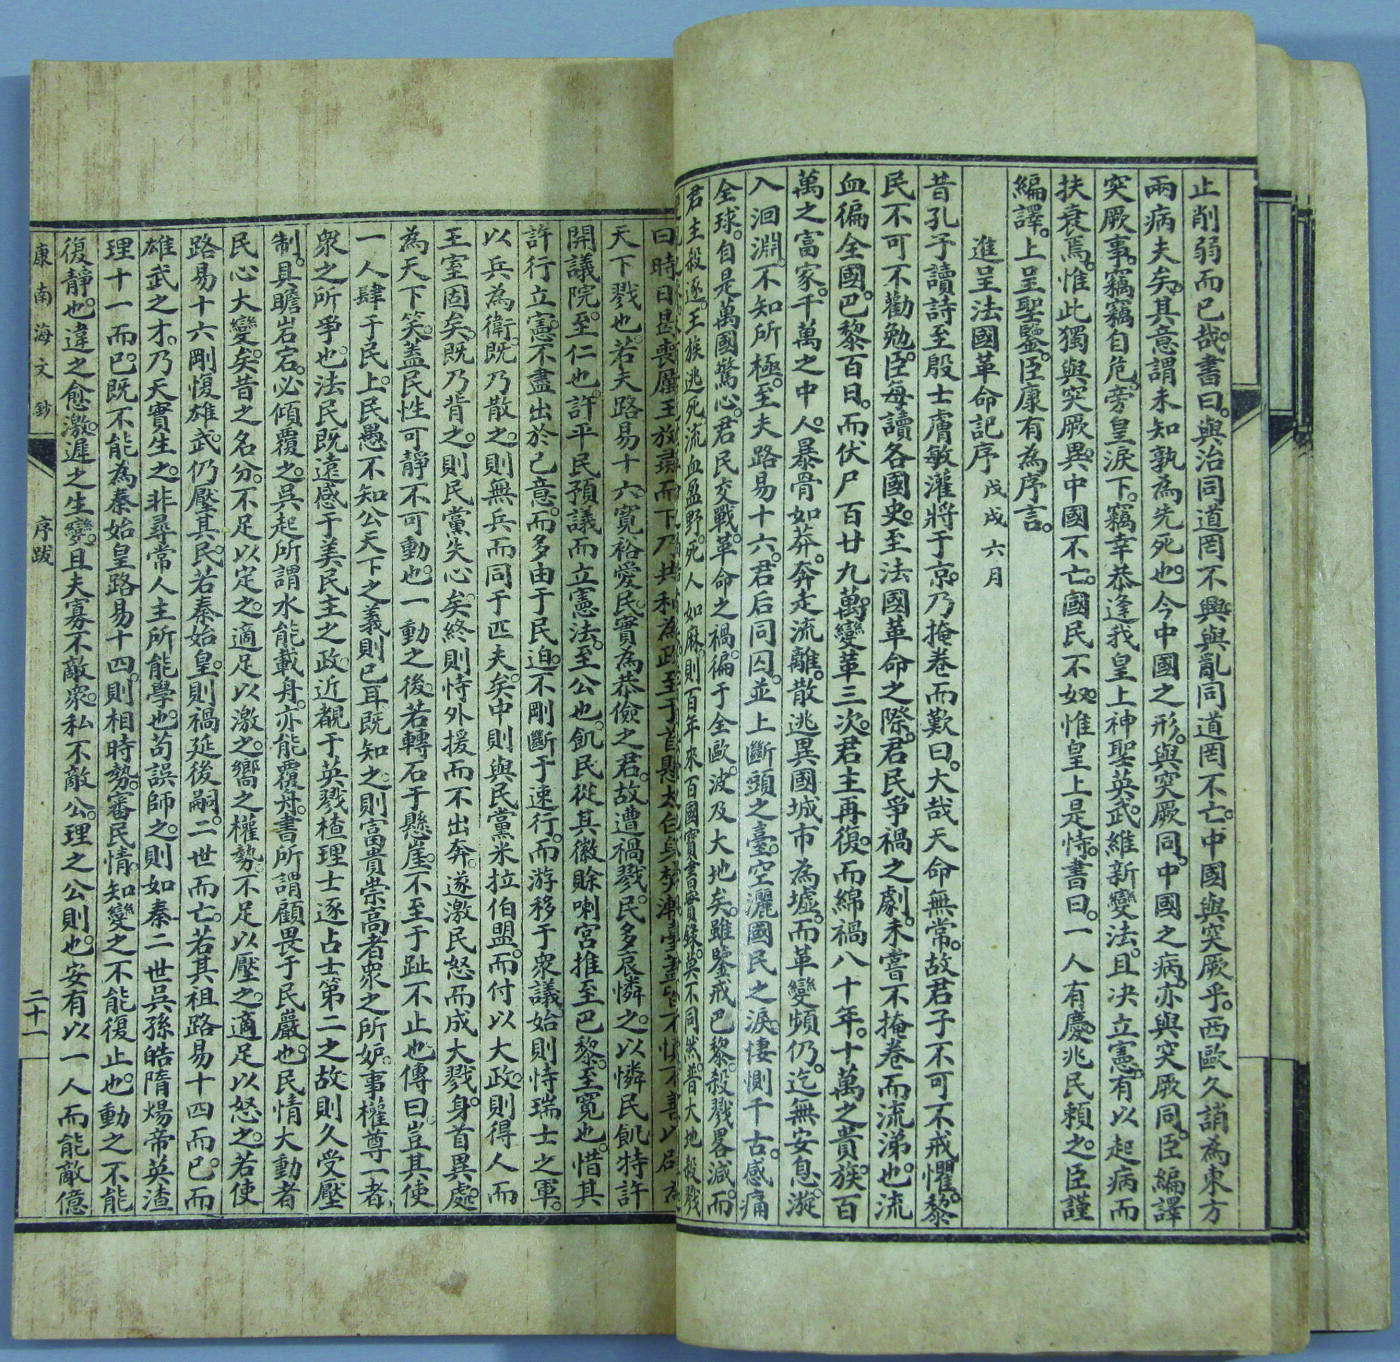 止削弱而已哉。書曰。與治同道罔不興。與亂同道罔不亡。中國與突厥乎。西歐久誚為東方
兩病夫矣。其意謂未知孰為先死也。今中國之形。與突厥同。中國之病。亦與突厥同。臣編譯
突厥事。竊竊自危。旁皇淚下。竊幸恭逢我皇上神聖英武。維新變法。且決立憲。有以起病而
扶衰焉。惟此獨與突厥異。中國不亡。國民不奴。惟皇上是恃。書曰。一人有慶。兆民賴之。臣謹
編譯。上呈聖鑒。臣康有為序言。
進呈法國革命記序 戊戌六月
昔孔子讀詩至殷士膚敏灌將于京。乃掩卷而歎曰。大哉天命無常。故君子不可不戒懼。黎
民不可不勸勉。臣每讀各國史。至法國革命之際。君民爭禍之劇。未嘗不掩卷而流涕也。流
血徧全國。巴黎百日。而伏尸百廿九萬。變革三次。君主再復。而綿禍八十年。十萬之貴族。百
萬之富家。千萬之中人。暴骨如莽。奔走流離。散逃異國。城市為墟。而革變頻仍。迄無安息。漩
入洄淵。不知所極。至夫路易十六。君后同囚。並上斷頭之臺。空灑國民之淚。悽惻千古。感痛
全球。自是萬國驚心。君民交戰。革命之禍。徧于全歐。波及大地矣。雖鑒戒巴黎。殺戮畧減。而
君主殺逐。王族逃死。流血盈野。死人如麻。則百年來百國寶書實錄。莫不同然。普大地殺戮
曰時日曷喪。厲王放彘而下。乃共和為政。至于首懸太白。身焚
天下戮也。若夫路易十六。寬裕愛民。實為恭儉之君。故遭禍戮。民多哀憐之。以憐民飢。特許
開議院。至仁也。許平民預議而立憲法。至公也。飢民從其徽賒喇宮推至巴黎。至寬也。惜其
許行立憲。不盡出於己意。而多由于民迫。不剛斷于速行。而游移于衆議。始則恃瑞士之軍。
以兵為衛。既乃散之。則無兵而同于匹夫矣。中則與民黨米拉伯盟。而付以大政。則得人而
王室固矣。既乃背之。則民黨失心矣。終則恃外援而不出奔。遂激民怒而成大戮。身首異處。
為天下笑。蓋民性可靜不可動也。一動之後。若轉石于懸崖。不至于趾不止也。傳曰。豈其使
一人肆于民上。民愚不知公天下之義則已耳。既知之。則富貴崇高者。衆之所妒。事權尊一者。
衆之所爭也。法民既遠感于美民主之政。近覩于英戮楂理士逐占士第二之故。則久受壓
制。具瞻岩岩。必傾覆之。吳起所謂水能載舟。亦能覆舟。書所謂顧畏于民巖也。民情大動者
民心大變矣。昔之名分。不足以定之。適足以激之。嚮之權勢。不足以壓之。適足以怒之。若使
路易十六剛愎雄武。仍壓其民。若秦始皇。則禍延後嗣。二世而亡。若其祖路易十四而已。而
雄武之才。乃天實生之。非尋常人主所能學也。苟誤師之。則如秦二世吳孫皓隋煬帝英渣
理十一而已。既不能為秦始皇路易十四。則相時勢。審民情。知變之不能復止也。動之不能
復靜也。違之愈激。遲之生變。且夫寡不敵衆。私不敵公。理之公則也。安有以一人而能敵億
康南海文鈔 序跋 二十一